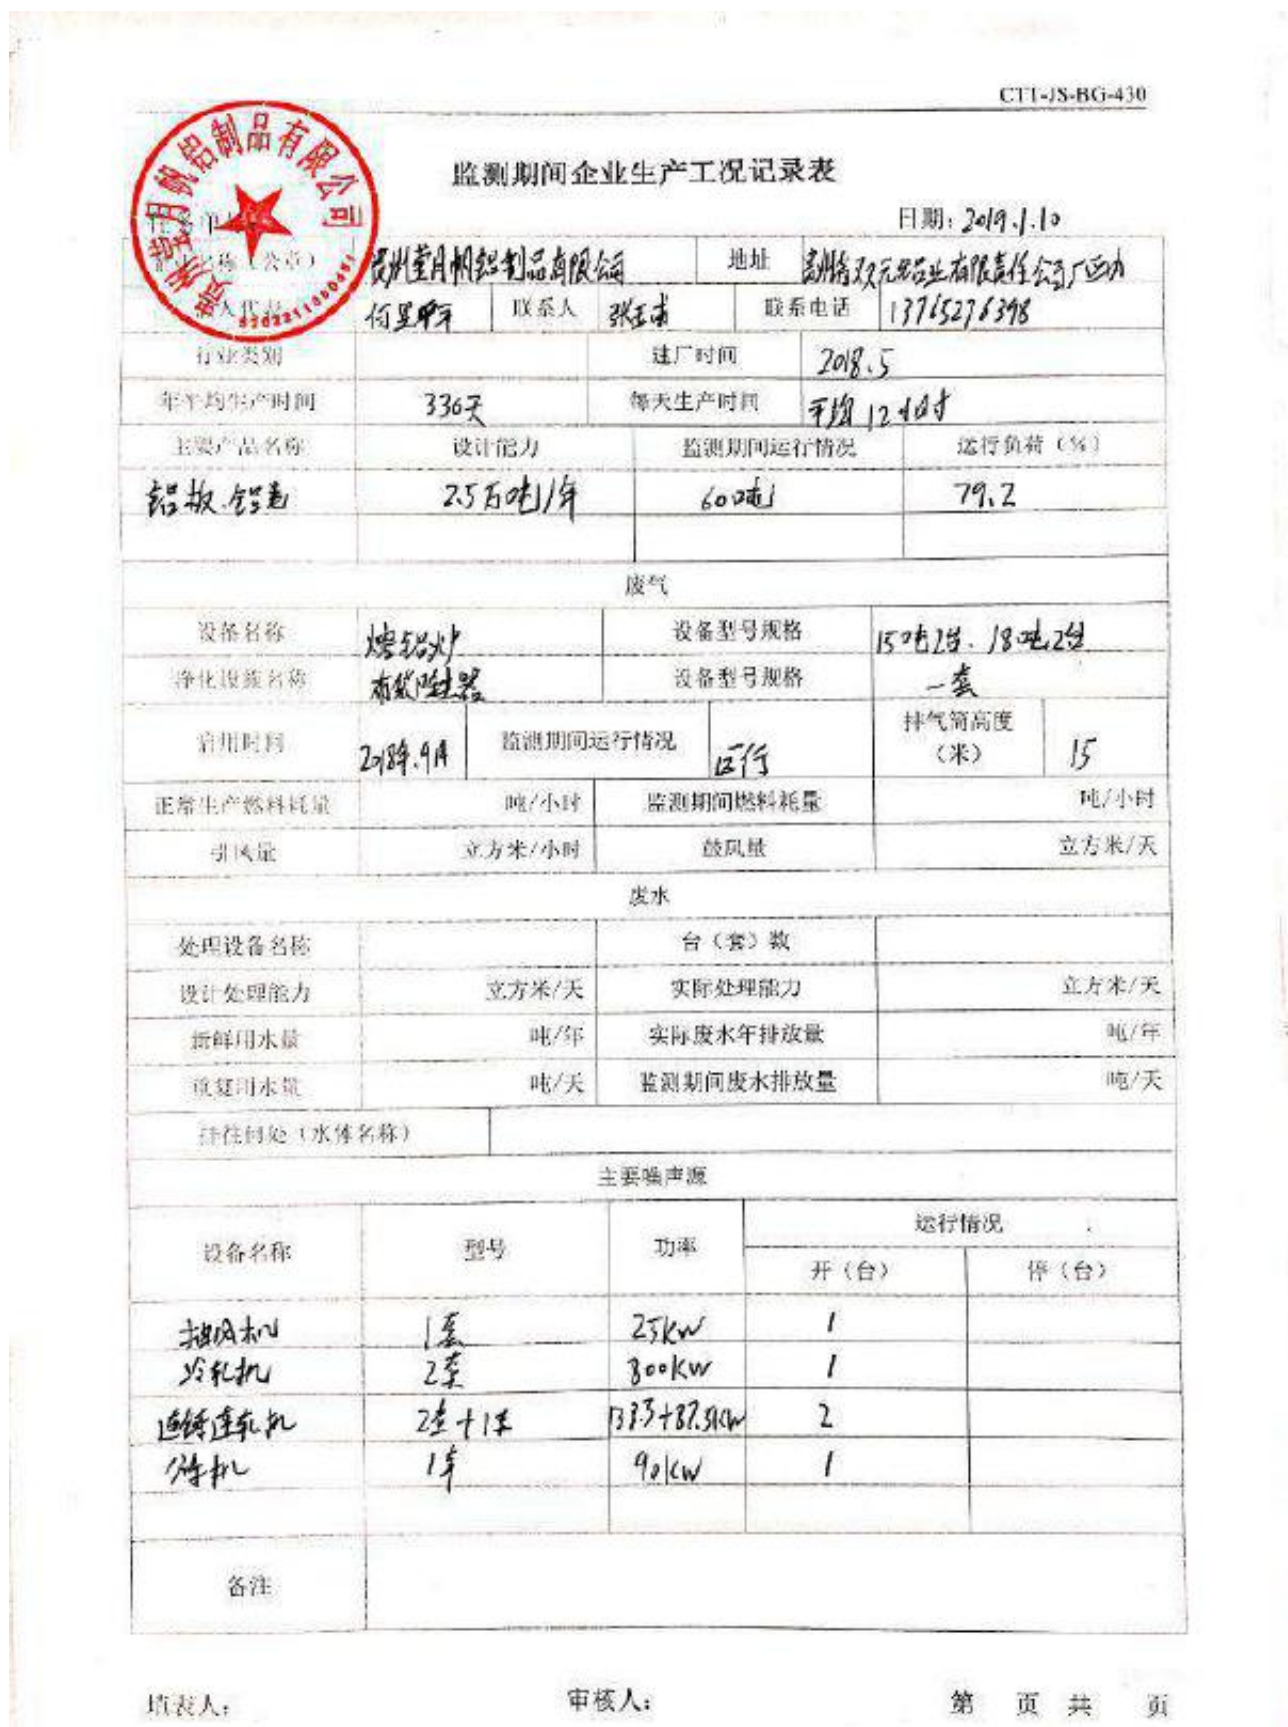 CTT-JS-BG-430
监测期间企业生产工况记录表
日期：2019.1.10
贵州莹月帆铝制品有限公司 地址
联系人 联系电话 13765276398
行业类别 建厂时间 2018.5
年平均生产时间 330天 每天生产时间 平均12小时
主要产品名称 设计能力 监测期间运行情况 运行负荷（%）
铝板.铝卷 2.5万吨/年 60吨 79.2
废气
设备名称 熔铝炉 设备型号规格 15吨2台、18吨2台
净化设施名称 布袋除尘器 设备型号规格 一套
启用时间 2018年.9月 监测期间运行情况 运行 排气筒高度（米） 15
正常生产燃料耗量 吨/小时 监测期间燃料耗量 吨/小时
引风量 立方米/小时 鼓风量 立方米/天
废水
处理设备名称 台（套）数
设计处理能力 立方米/天 实际处理能力 立方米/天
新鲜用水量 吨/年 实际废水年排放量 吨/年
重复用水量 吨/天 监测期间废水排放量 吨/天
排往何处（水体名称）
主要噪声源
设备名称 型号 功率 运行情况
开（台） 停（台）
抽风机 1套 25kw 1
冷轧机 2套 800kw 1
连铸连轧机 2
1 90kw 1
备注
填表人： 审核人： 第 页 共 页